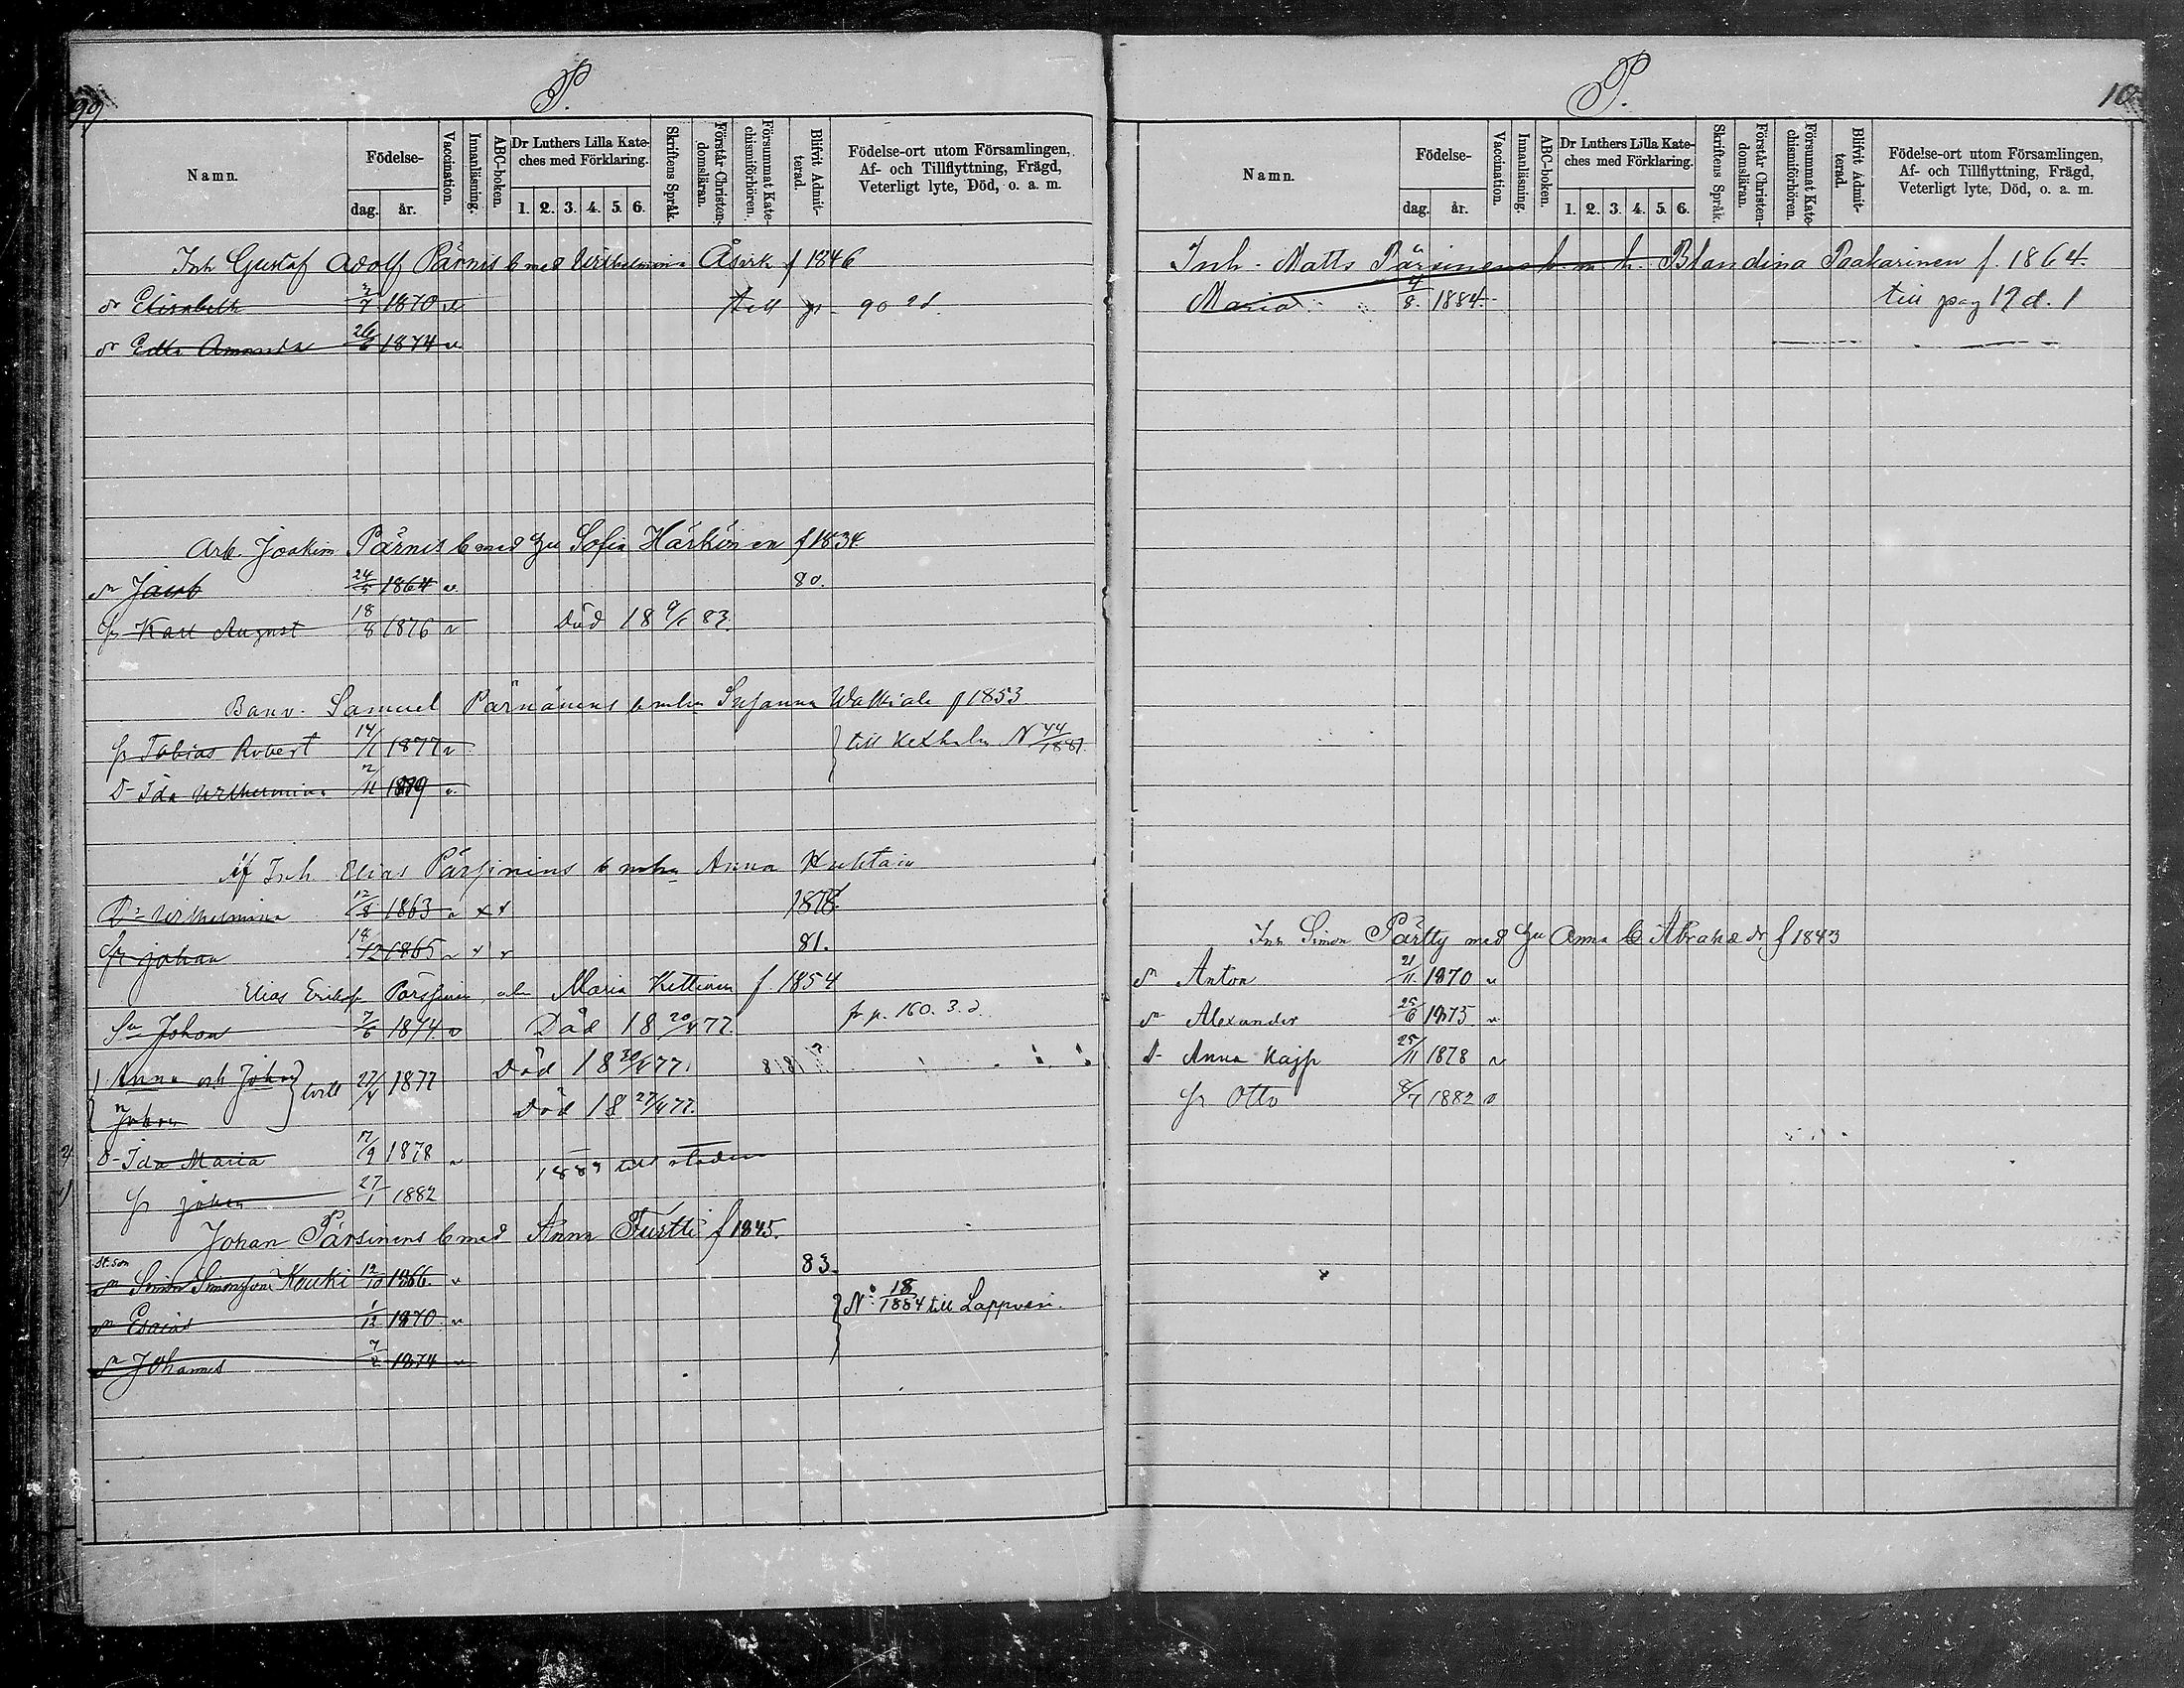 99
P.
Namn.
Födelse-
dag. år.
Vaccination.
Innanläsning.
ABC-boken.
Dr Luthers Lilla Kate-
ches med Förklaring.
1. 2. 3. 4. 5. 6.
Skriftens Språk.
Förstår Christen-
domsläran.
Försummat Kate-
chismiförhören.
Blifvit Admit-
terad.
Födelse-ort utom Församlingen,
Af- och Tillflyttning, Frägd,
Veterligt lyte, Död, o. a. m.
Inh Gustaf Adolf Pärnis b med Wilhelmina f 1846
dr Elisabeth 2/7 1870 v till 90 2d
dr Edla Amanda 26/6 1874 v
Arb. Joakim Pärnis b med hu Sofia Härkönen f 1834
sn Jacob 24/5 1864 v 80.
sn Karl August 18/8 1876 v Död 18 9/6 83.
Samuel Pärnänens Susanna f 1853
Tobias Robert 14/1 1877 v till Kexholm N 44/1881.
D- Ida Wilhelmina 2/11 1879 v
Af Inh Elias Pärsinins Anna
Dr Wilhelmina 12/8 1863 v 1878
johan 18/12 1865 v 81.
Elias Maria Kettinen f. 1854
Sn Johan 7/6 1874 v Död 18 20/4 77. fr p. 160. 3. d.
Anna och Johan tvill 27/4 1877 Död 18 30/4 77.
Johan Död 18 27/4 77.
D- Ida Maria 7/9 1878 v 1883 till staden
johan 27/1 1882
Johan Pärsinens b med Anna Turtti f 1845.
St. son
sn Simon Simonsson Kouki 12/10 1866 v 83.
sn Esaias 1/12 1870 v No 18/1884 till Lappvesi.
sn Johannes 7/2 1874 v
P.
10
Namn.
Födelse-
dag. år.
Vaccination.
Innanläsning.
ABC-boken.
Dr Luthers Lilla Kate-
ches med Förklaring.
1. 2. 3. 4. 5. 6.
Skriftens Språk.
Förstår Christen-
domsläran.
Försummat Kate-
chismiförhören.
Blifvit Admit-
terad.
Födelse-ort utom Församlingen,
Af- och Tillflyttning, Frägd,
Veterligt lyte, Död, o. a. m.
Inh. Matts Pärsinens b. m. h. Blandina Paakarinen f. 1864.
Maria 4/8. 1884. till pag 19 d. 1
Inh Simon Pärtty med hu Anna Abrahadr f 1843
sn Anton 21/11 1870 v
sn Alexander 25/6 1875 v
d- Anna Kajsa 25/11 1878 v
Otto 8/7 1882 v